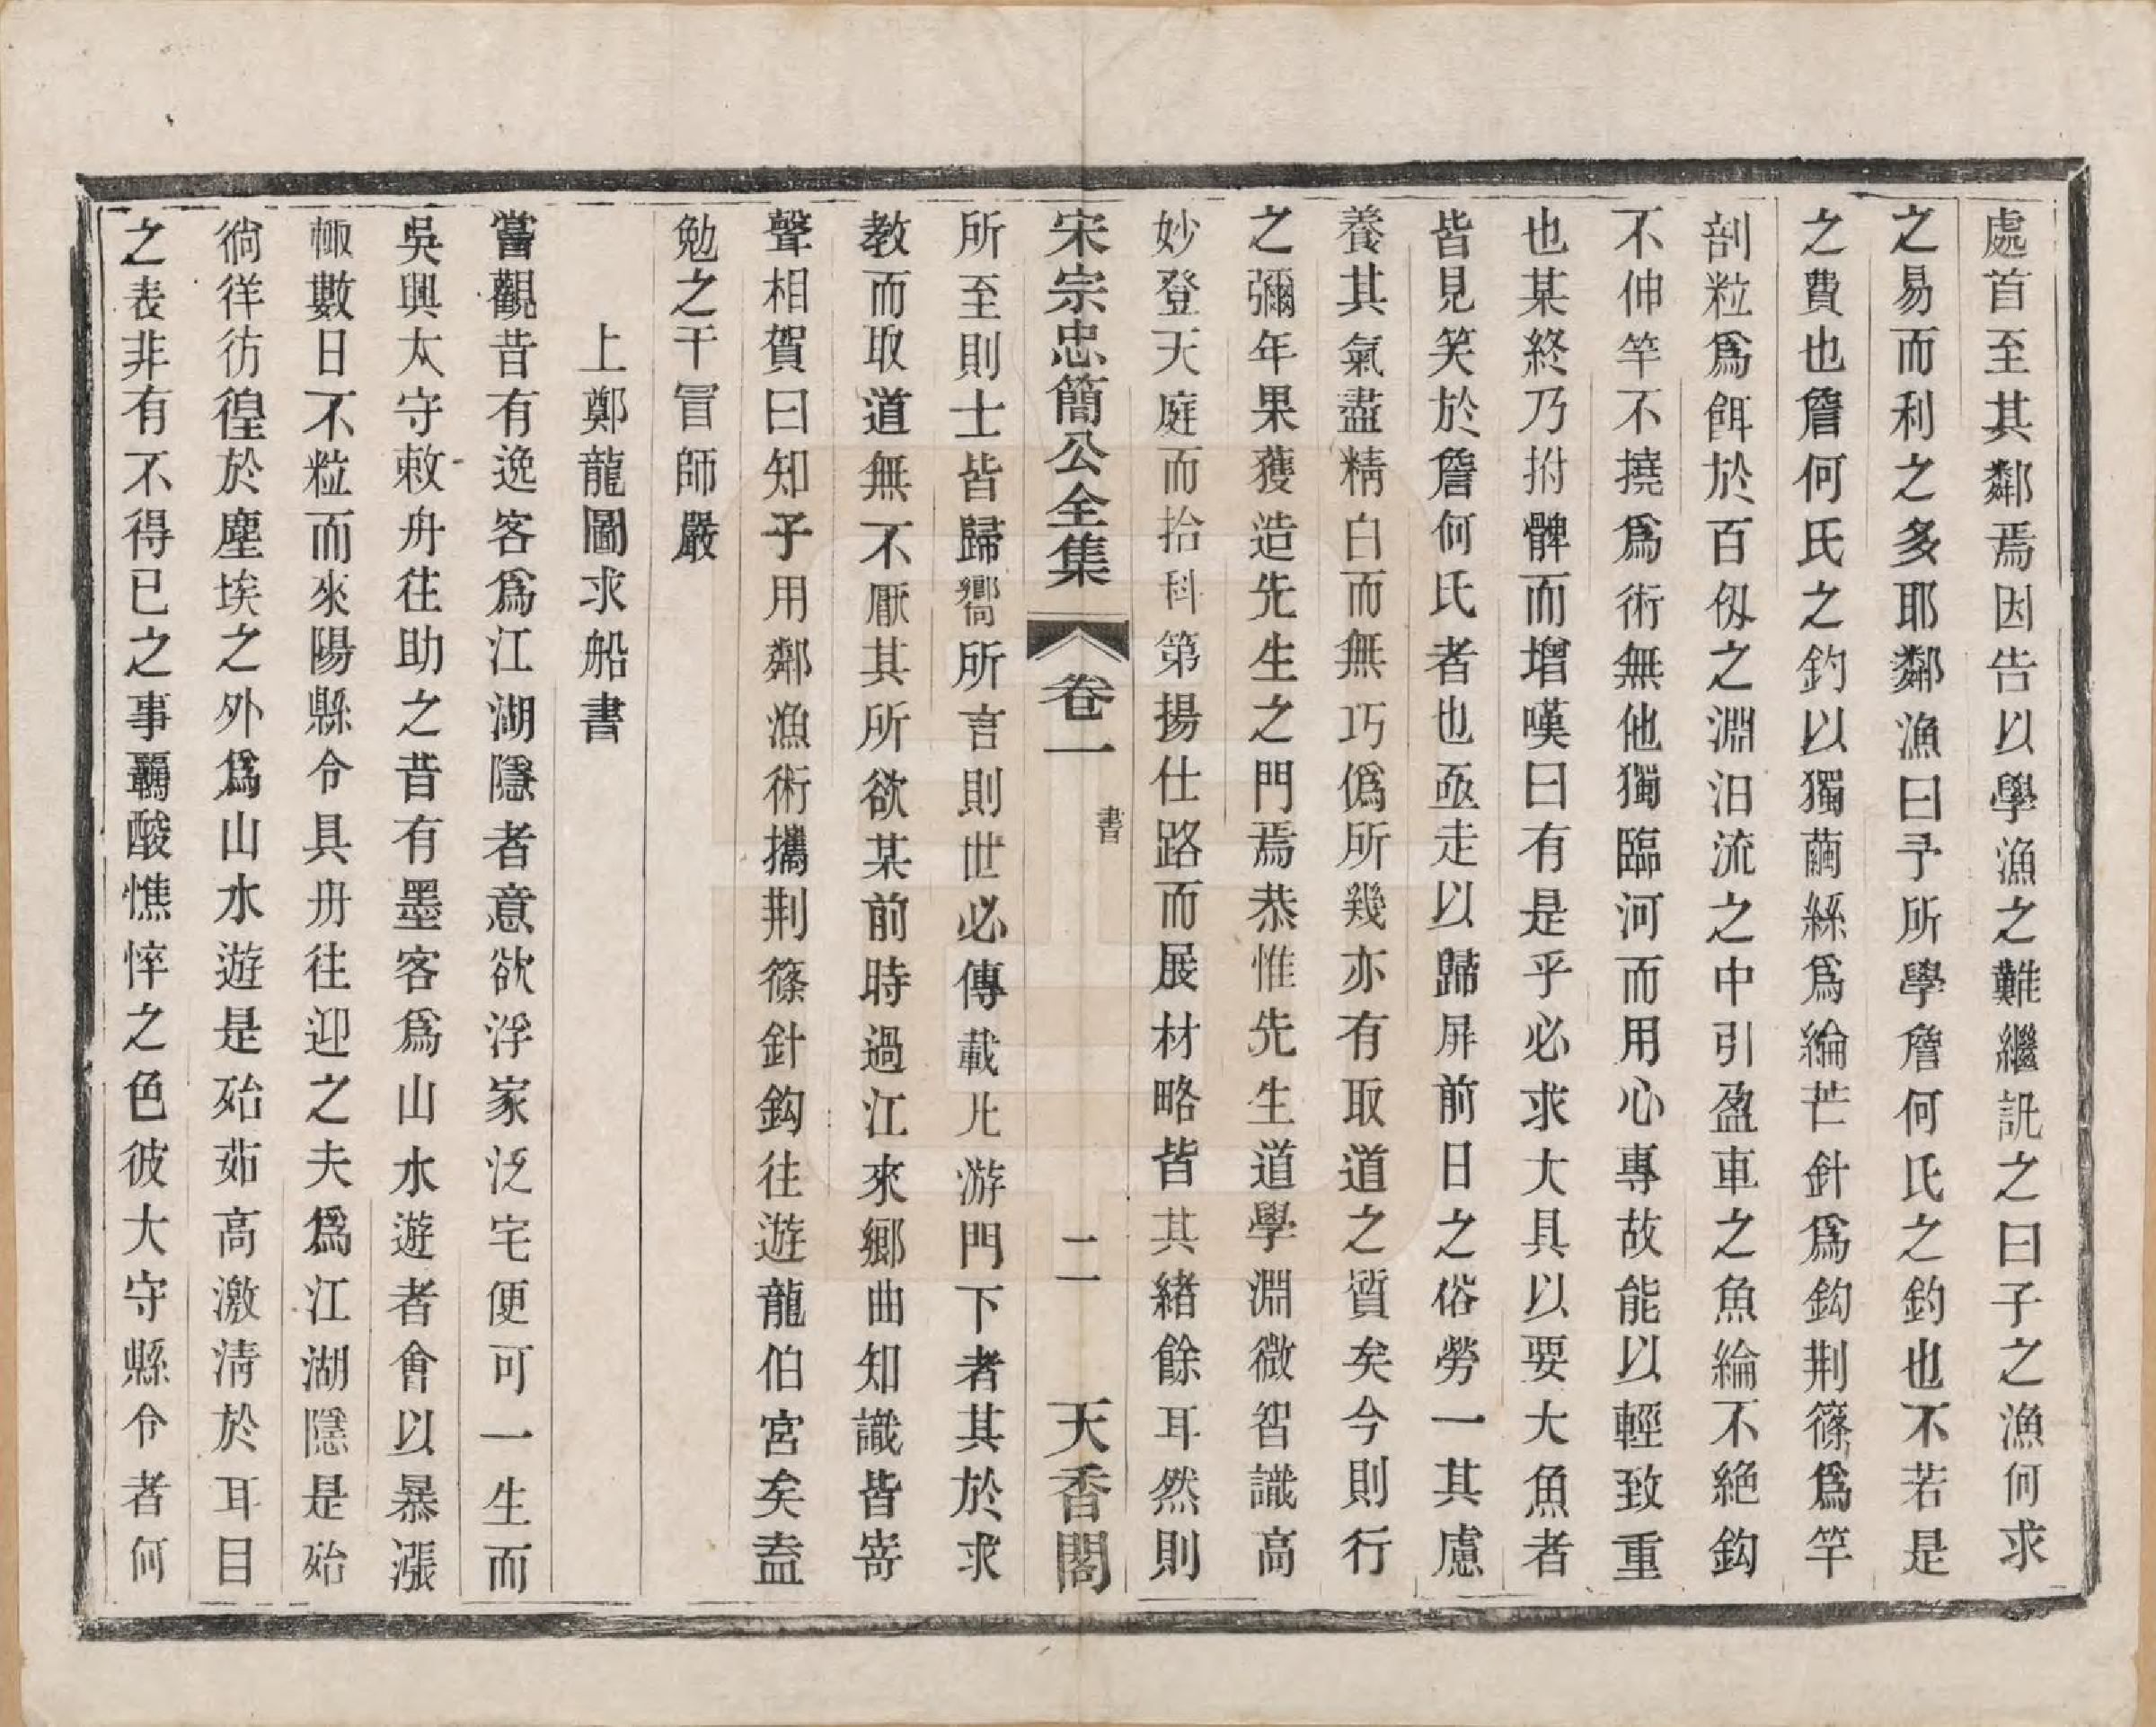 處首至其鄰焉因告以學漁之難繼訊之曰子之漁何求
之易而利之多耶鄰漁曰予所學詹何氏之釣也不若是
之費也詹何氏之釣以獨繭絲爲綸芒針爲鈎荆篠爲竿
剖粒爲餌於百仭之淵汨流之中引盈車之魚綸不絶鈎
不伸竿不撓爲術無他獨臨河而用心專故能以輕致重
也某終乃拊髀而增嘆曰有是乎必求大具以要大魚者
皆見笑於詹何氏者也亟走以歸屏前日之俗勞一其慮
養其氣盡精白而無巧僞所幾亦有取道之質矣今則行
之彌年果獲造先生之門焉恭惟先生道學淵微智識高
妙登天庭而拾科第揚仕路而展材略皆其緒餘耳然則
宋宗忠簡公全集 卷一 書 二 天香閣
所至則士皆歸嚮所言則世必傳載凡游門下者其於求
教而取道無不厭其所欲某前時過江來鄉曲知識皆寄
聲相賀曰知子用鄰漁術攜荆篠針鈎往遊龍伯宮矣盍
勉之干冒師嚴
上鄭龍圖求船書
嘗觀昔有逸客爲江湖隱者意欲浮家泛宅便可一生而
吳興太守敕舟往助之昔有墨客爲山水遊者會以暴漲
輒數日不粒而來陽縣令具舟往迎之夫爲江湖隱是殆
徜徉彷徨於塵埃之外爲山水遊是殆茹高激淸於耳目
之表非有不得已之事羈酸憔悴之色彼大守縣令者何